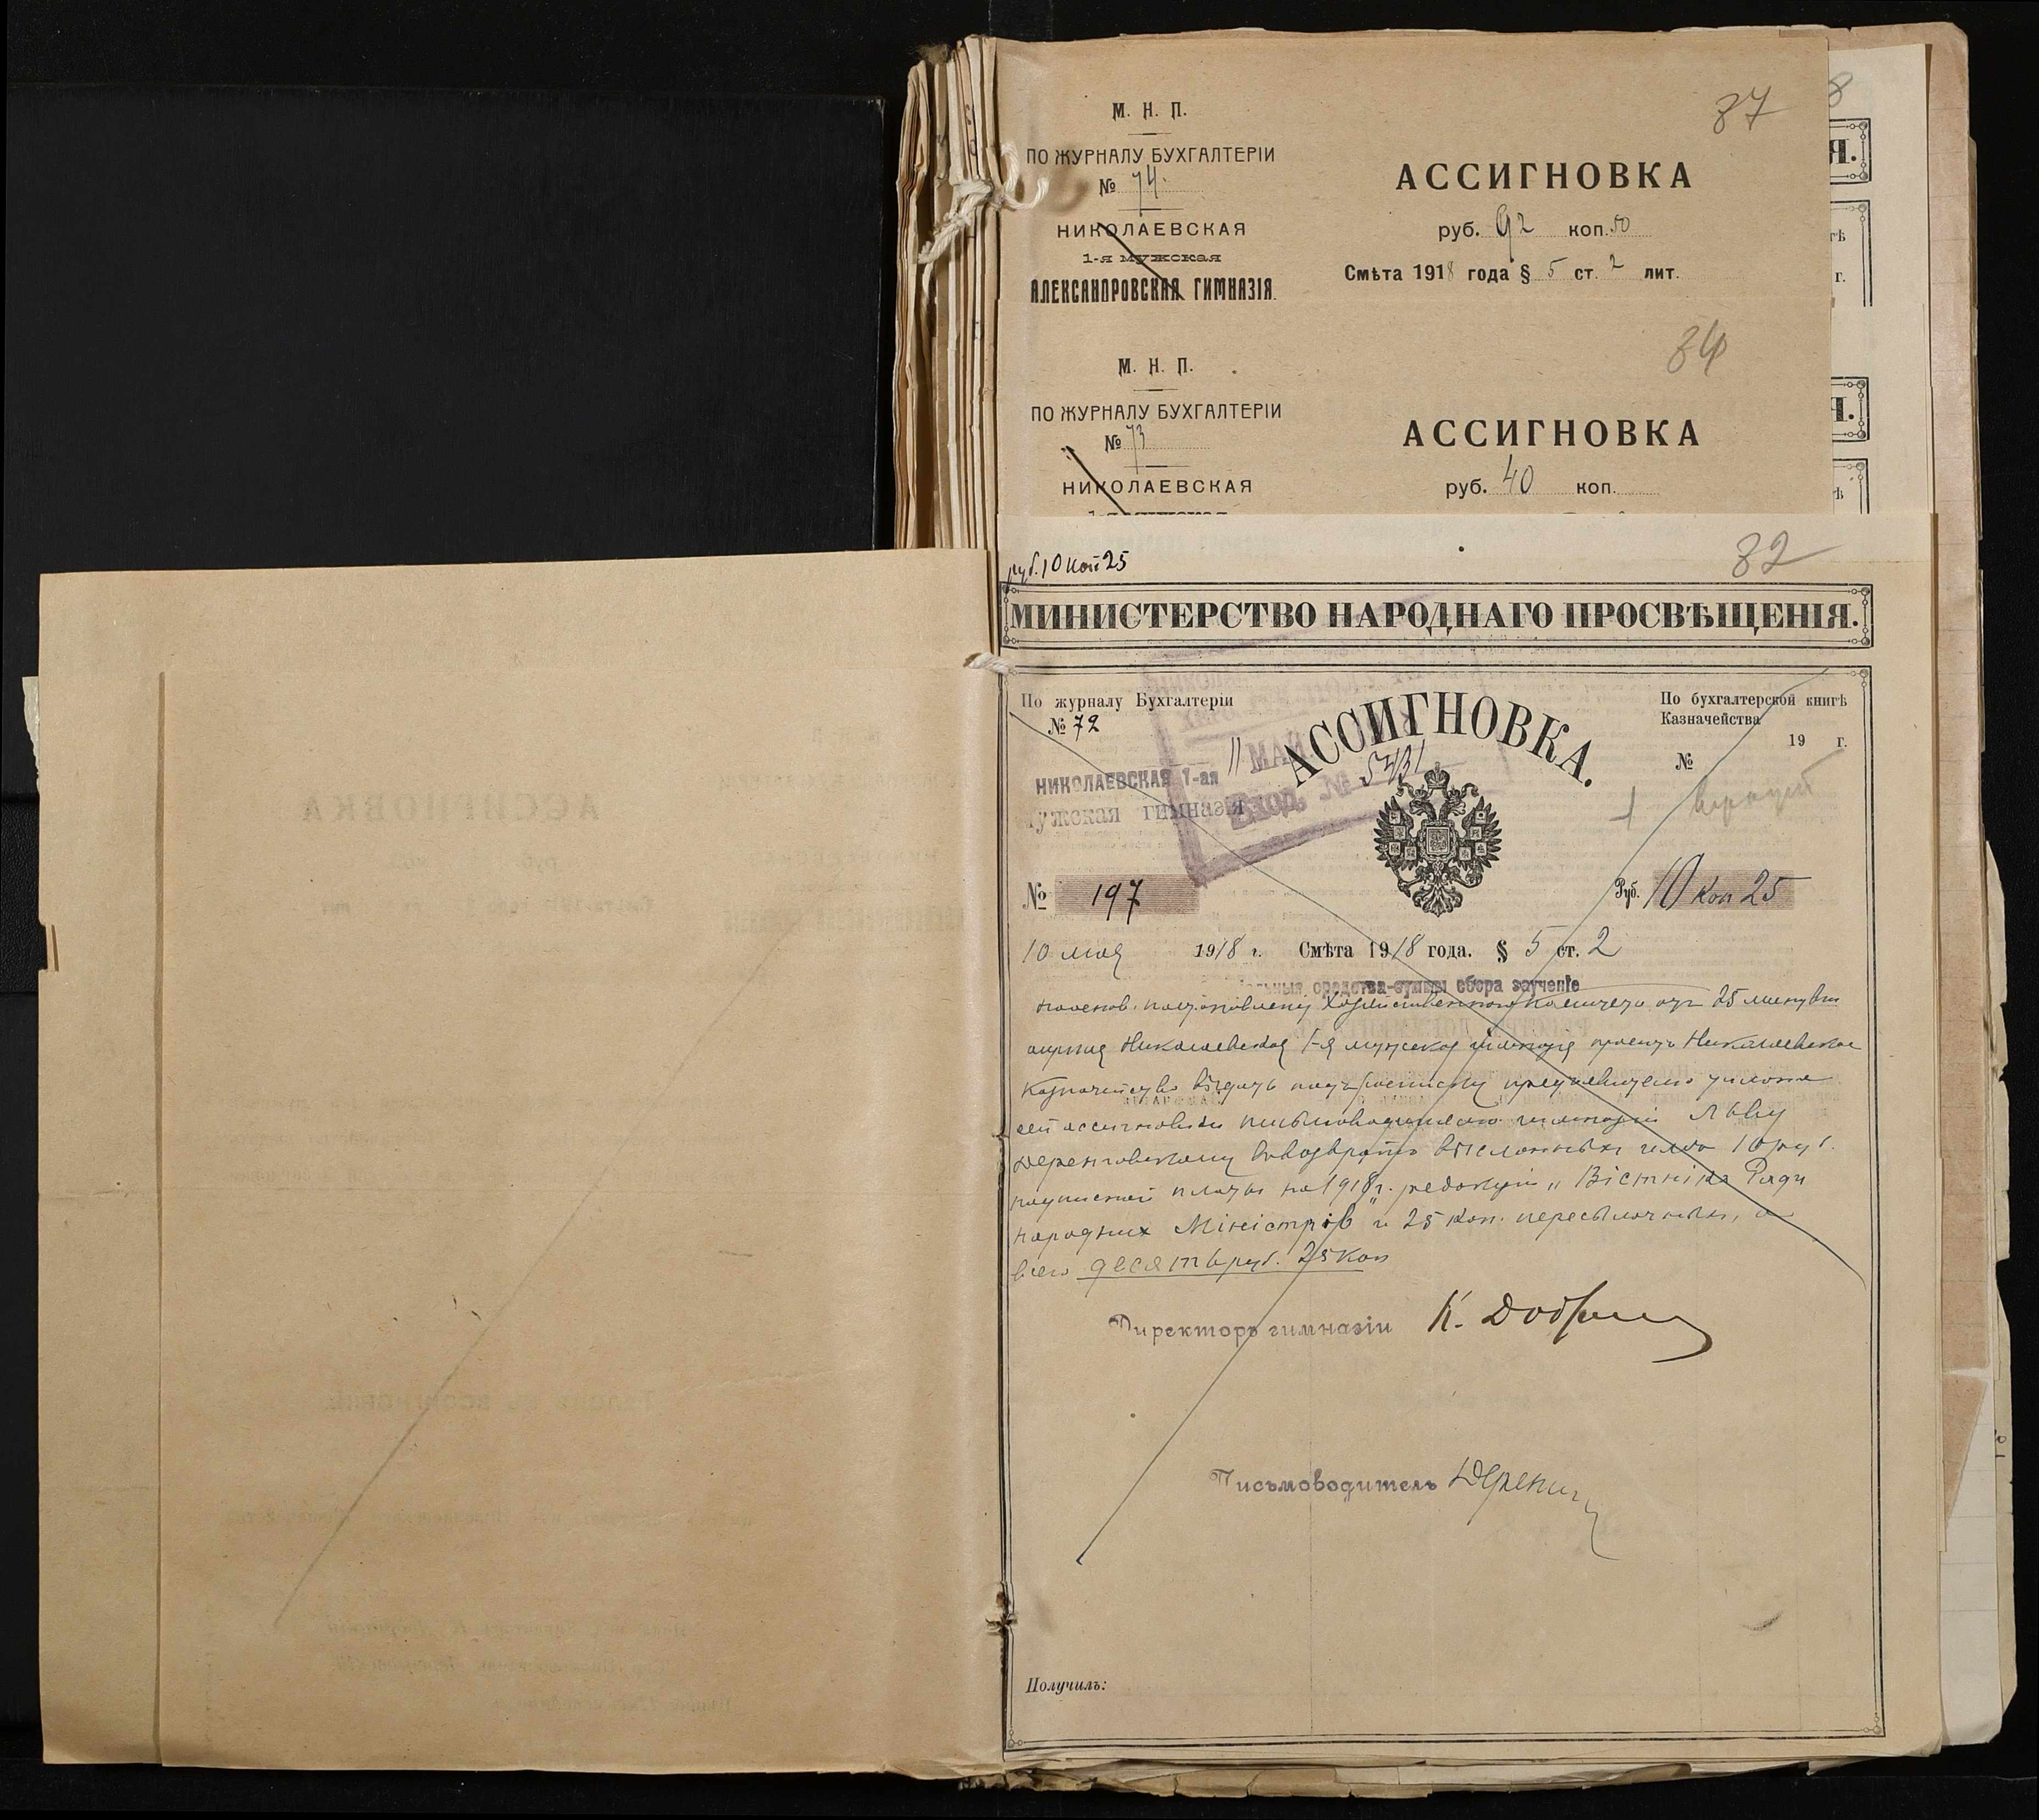 87
М. Н. П.
ПО ЖУРНАЛУ БУХГАЛТЕРІИ
№ 74.
НИКОЛАЕВСКАЯ
1-я мужская
АЛЕКСАНДРОВСКАЯ ГИМНАЗІЯ.
АССИГНОВКА
руб. 92 коп. 50
Смѣта 1918 года § 5 ст. 2 лит.
84
М. Н. П.
ПО ЖУРНАЛУ БУХГАЛТЕРІИ
№ 73
НИКОЛАЕВСКАЯ
АССИГНОВКА
руб. 40 коп.
82
руб. 10 коп 25
МИНИСТЕРСТВО НАРОДНАГО ПРОСВѢЩЕНІЯ.
По журналу Бухгалтеріи
№ 72
АССИГНОВКА.
По бухгалтерской книгѣ
Казначейства
19 г.
№
11 МАЙ
Вход. № 5431
НИКОЛАЕВСКАЯ 1-ая
мужская гимназія
№ 197
Руб. 10 коп 25
10 мая 1918 г. Смѣта 1918 года. § 5 ст. 2
средства-суммы сбора за ученіе
Хозяйственнаго Комитета отъ 25 минувш
апрѣля Николаевская 1-я мужская гимназія проситъ Николаевское
Казначейство выдать подъ росписку
сей ассигновки письмоводителю гимназіи Льву
въ возвратъ 10 руб.
подписной платы на 1918 г. редакціи „Вістника Ради
народних Міністрів" и 25 коп. пересылочныхъ, а
всего десять руб. 25 коп
Директоръ гимназіи К.
Письмоводитель
Получилъ: